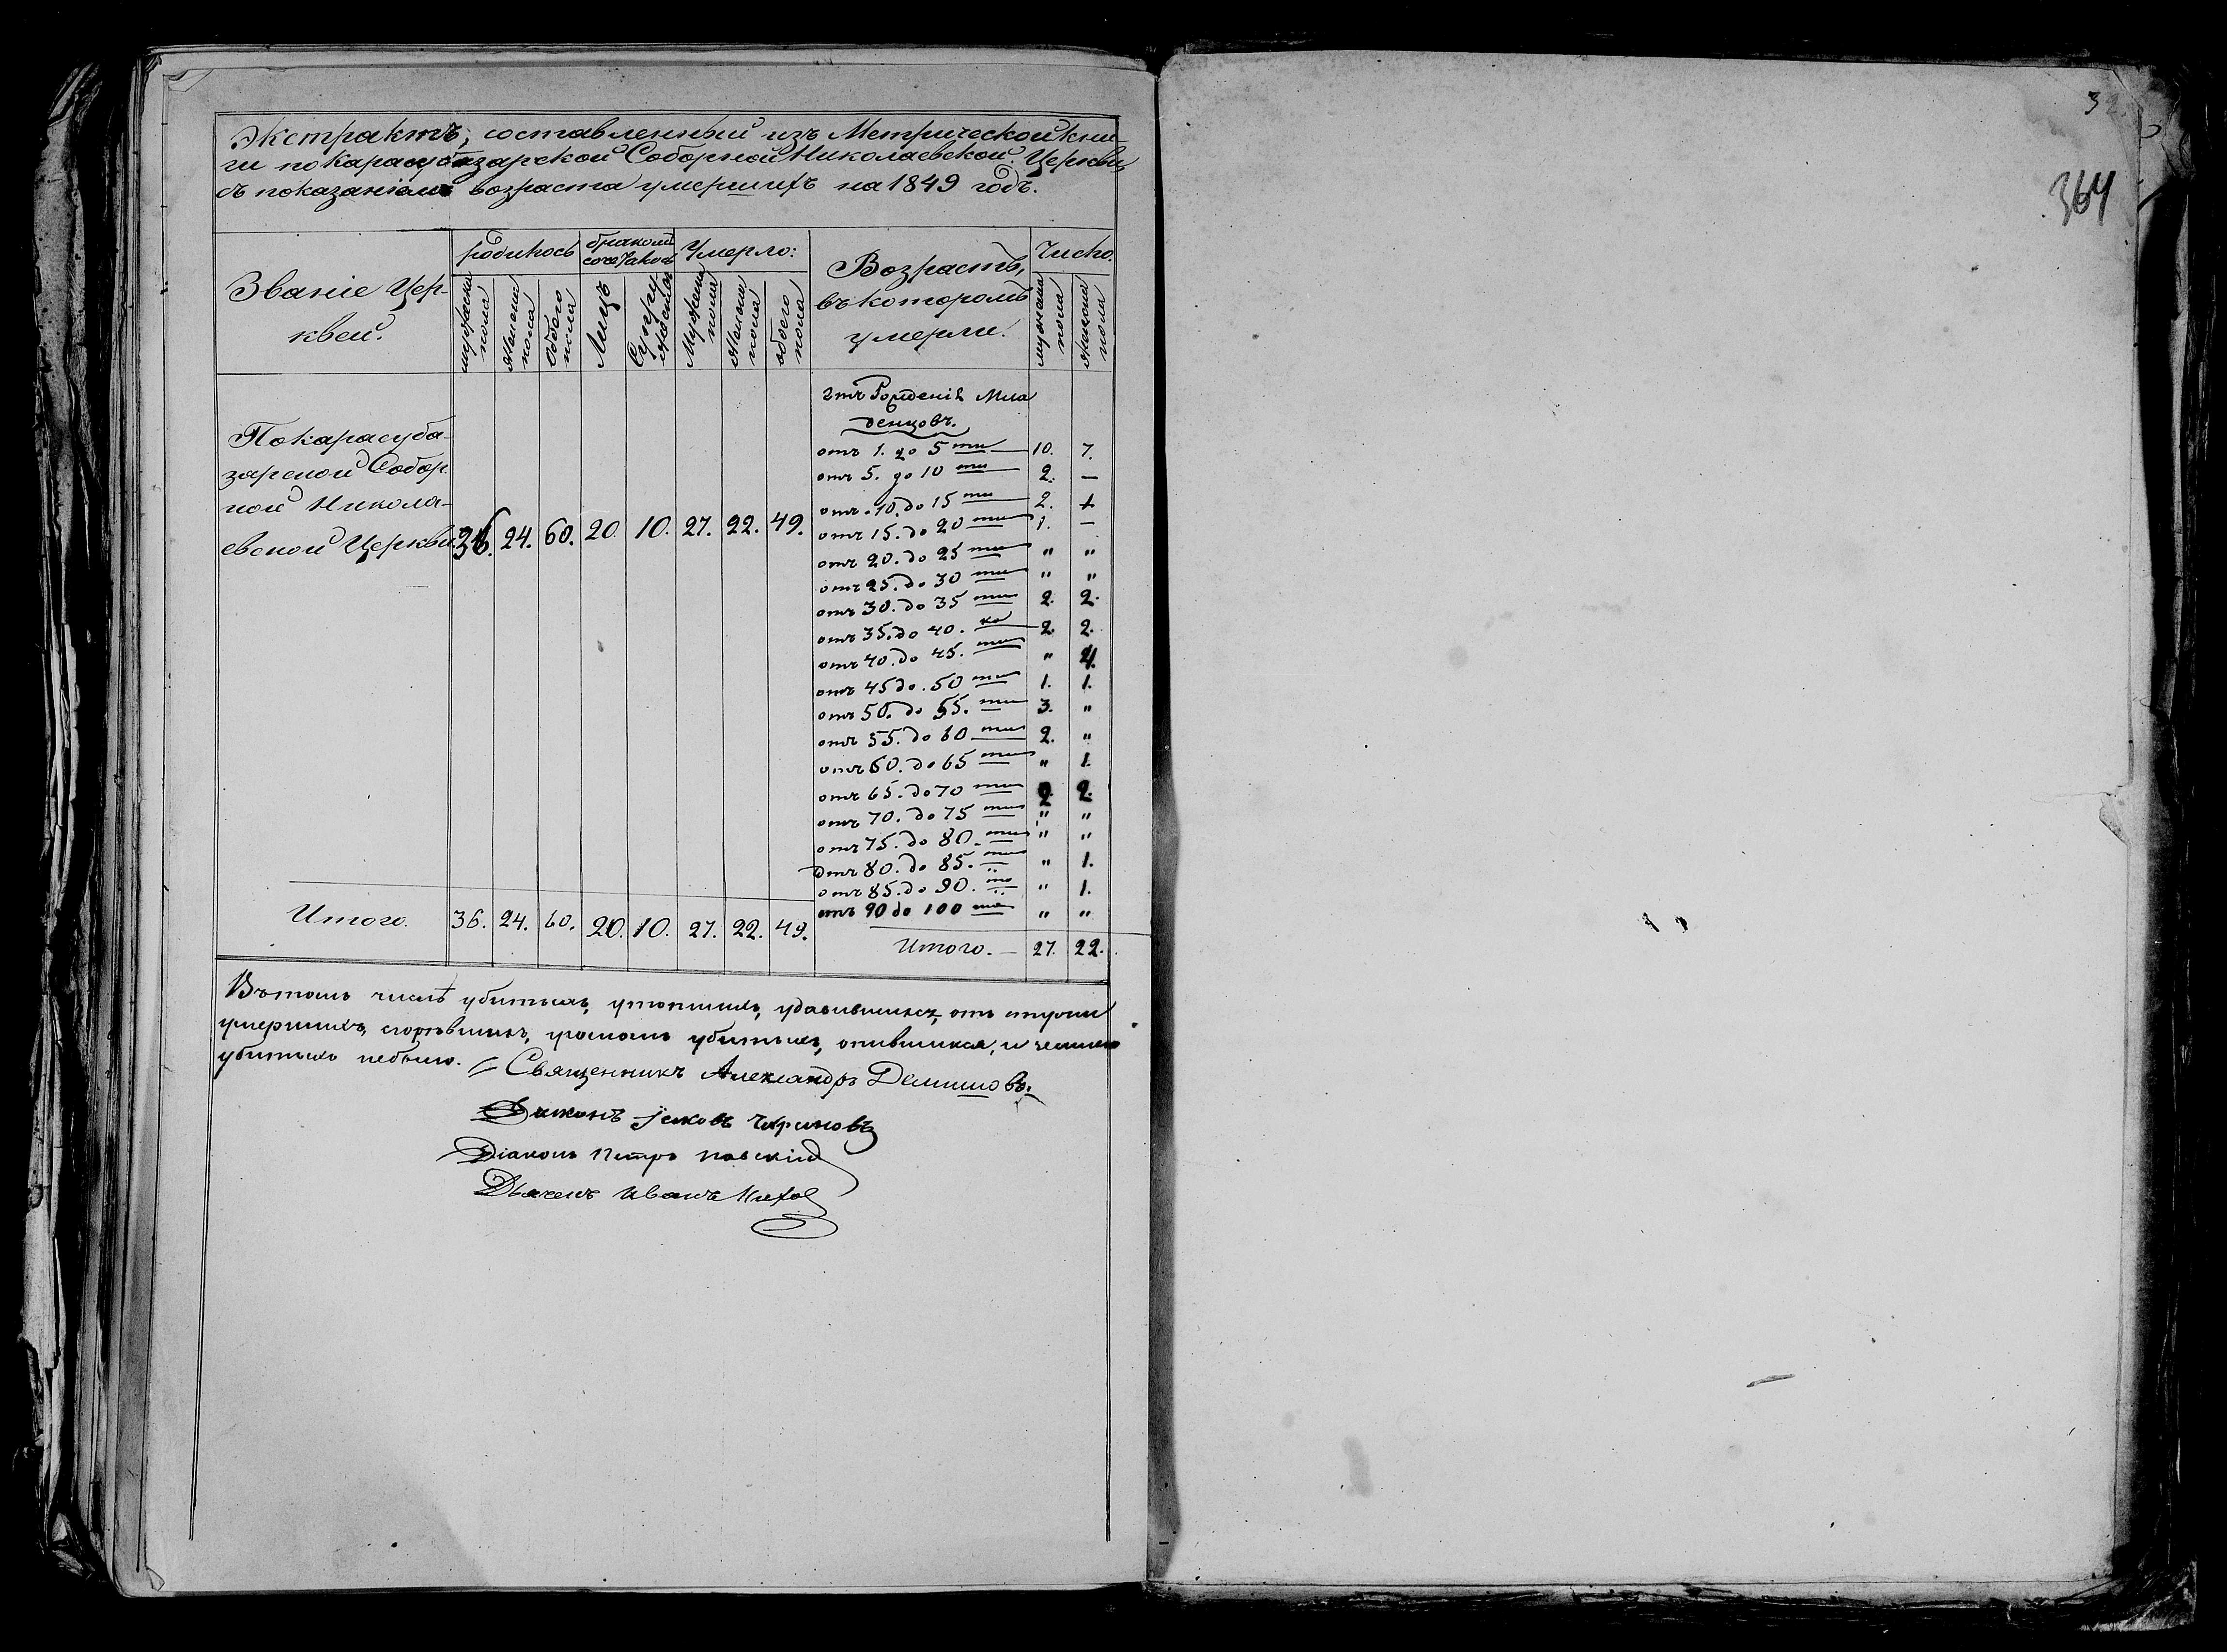 Экстрактъ, составленный изъ Метрической кни-
ги по Карасубазарской Соборной Николаевской Церкви,
съ показаніемъ возраста умершихъ на 1849 годъ.
Званіе Цер-
квей.
родилось
бракомъ
сочеталось
Умерло:
Возрастъ,
въ которомъ
умерли.
Число.
мужеска
пола
женска
пола
обоего
пола
Лицъ
Супру
жествъ
Мужеска
пола
женска
пола
обоего
пола
мужеска
пола
женска
пола
По Карасуба-
зарской Собор
ной Никола-
евской Церкви.
36. 24. 60. 20. 10. 27. 22. 49.
отъ Рожденія Мла
денцовъ.
отъ 1. до 5 ти 10. 7.
отъ 5. до 10 ти 2. —
отъ 10. до 15 ти 2. 1.
отъ 15. до 20 ти 1. —
отъ 20. до 25 ти " "
отъ 25. до 30 ти " "
отъ 30. до 35 ти 2. 2.
отъ 35. до 40. ка 2. 2.
отъ 40. до 45. ти " 4.
отъ 45 до 50 ти 1. 1.
отъ 50. до 55. ти 3. "
отъ 55. до 60 ти 2. "
отъ 60. до 65 ти " 1.
отъ 65. до 70 ти 2. 2.
отъ 70. до 75 ти " "
отъ 75. до 80. ти " "
отъ 80. до 85. ти " 1.
отъ 85. до 90. то " 1.
отъ 90 до 100 та " "
Итого. 36. 24. 60. 20. 10. 27. 22. 49.
Итого. — 27. 22.
Въ томъ числѣ убитыхъ, утопшихъ, удавившихся, отъ стужи
умершихъ, сгорѣвшихъ, громомъ убитыхъ, опившихся, и землею
убитыхъ небыло. Священникъ Александръ Демишовъ.
Діаконъ Петръ
Дьячекъ Иванъ
364